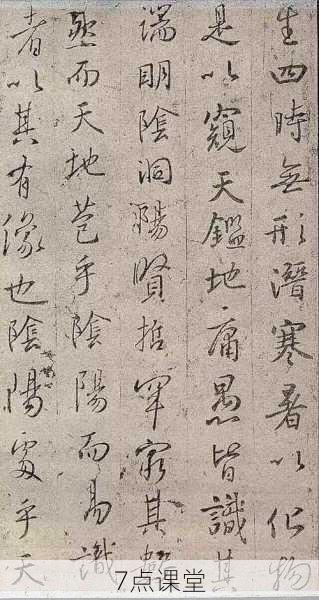 生四時無形潛寒暑以化物
是以窺天鑑地庸愚皆識其
端明陰洞陽賢哲罕窮其數
然而天地苞乎陰陽而易識
者以其有像也陰陽處乎天
7点课堂